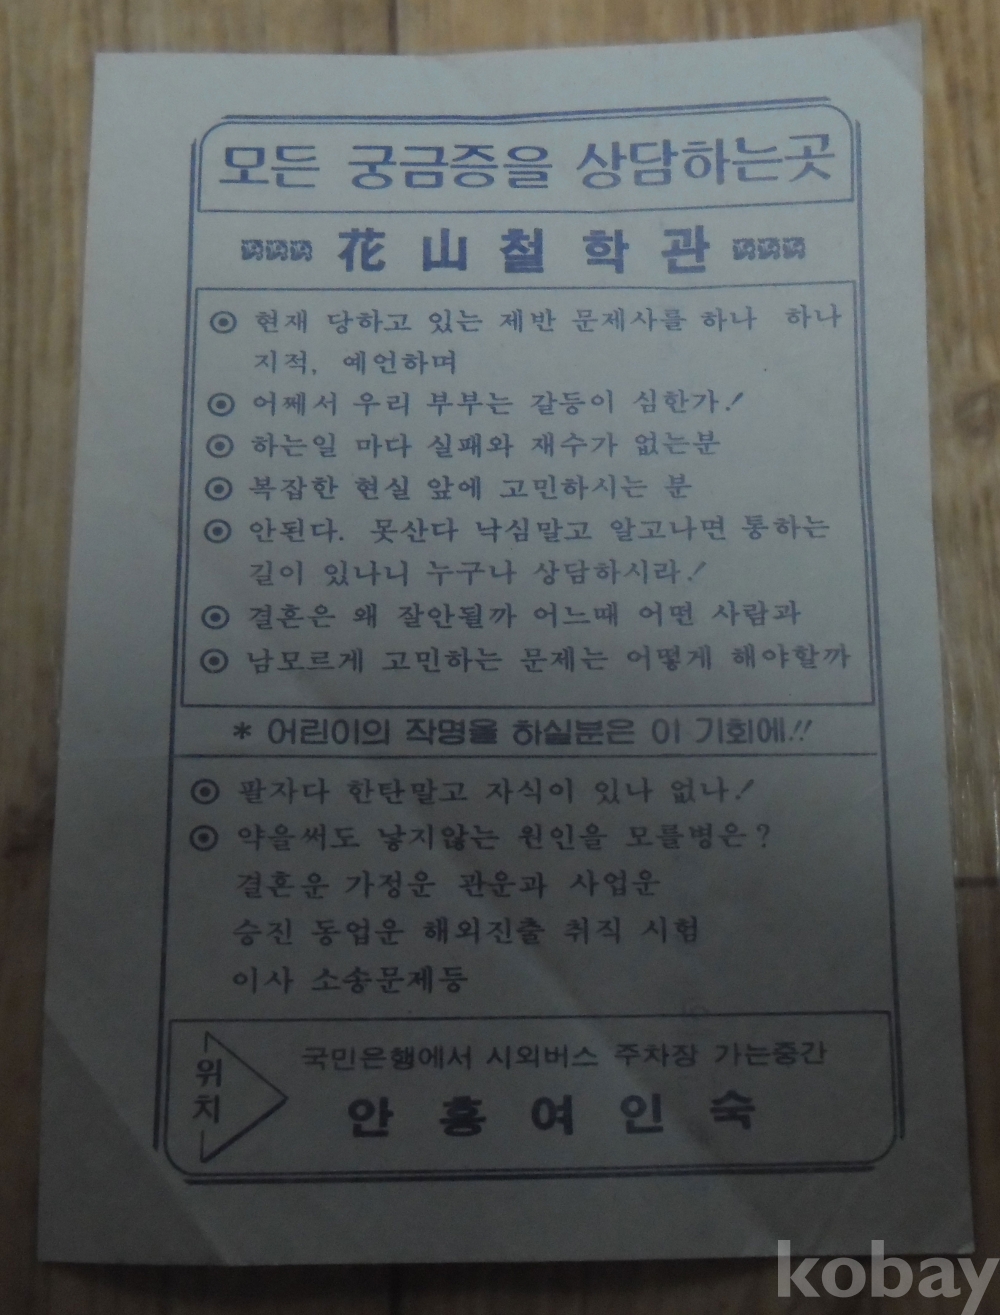 모든 궁금증을 상담하는곳
花山철학관
◉ 현재 당하고 있는 제반 문제사를 하나 하나
지적, 예언하며
◉ 어쩨서 우리 부부는 갈등이 심한가!
◉ 하는일 마다 실패와 재수가 없는분
◉ 복잡한 현실 앞에 고민하시는 분
◉ 안된다. 못산다 낙심말고 알고나면 통하는
길이 있나니 누구나 상담하시라!
◉ 결혼은 왜 잘안될까 어느때 어떤 사람과
◉ 남모르게 고민하는 문제는 어떻게 해야할까
* 어린이의 작명을 하실분은 이 기회에!!
◉ 팔자다 한탄말고 자식이 있나 없나!
◉ 약을써도 낳지않는 원인을 모를병은?
결혼운 가정운 관운과 사업운
승진 동업운 해외진출 취직 시험
이사 소송문제등
위치
국민은행에서 시외버스 주차장 가는중간
안흥여인숙
kobay